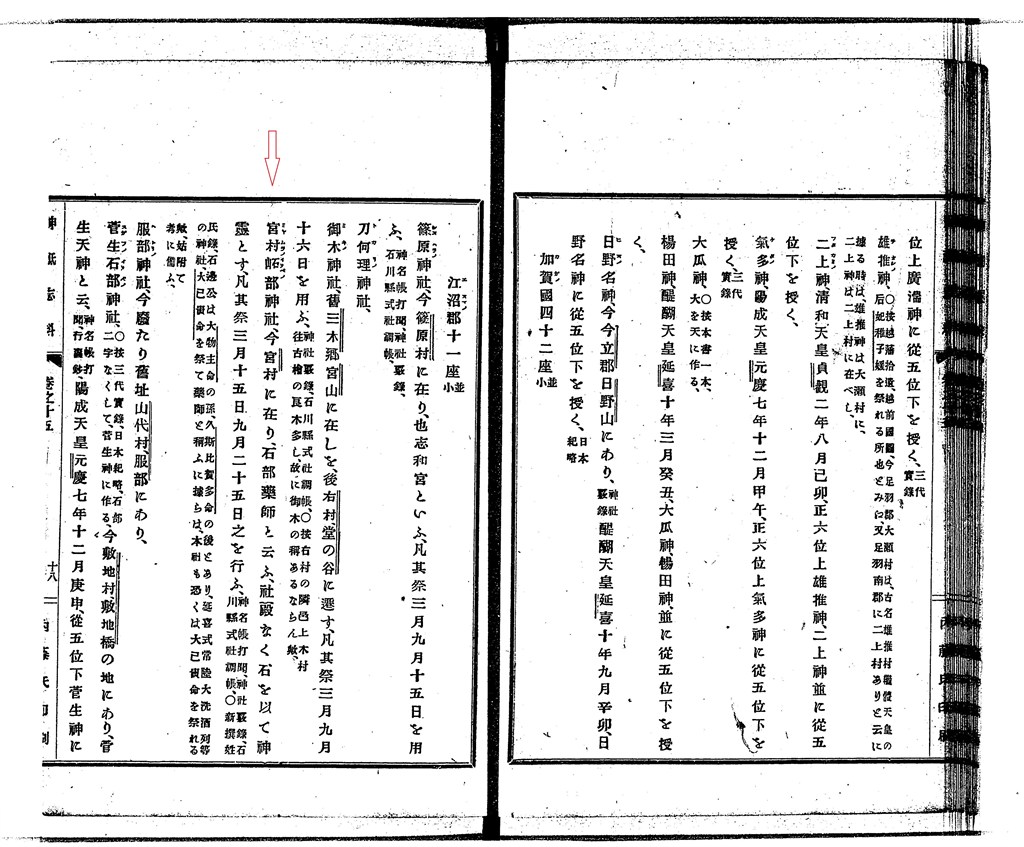 位上廣濡神に從五位下を授く、三代實錄
雄推神、〇按越藩拾遺、越前國圖、今足羽郡大瀬村は、古名雄推村繼體天皇の后妃稚子媛を祭れる所也とみに又足羽南郡に二上村ありと云に
據る時は、雄推神社は大瀬村に、二上神は二上村に在べし、
二上神清和天皇貞觀二年八月己卯、正六位上雄推神、二上神並に從五
位下を授く、
氣多神、陽成天皇元慶七年十二月甲午、正六位上氣多神に從五位下を
授く、三代實錄
大瓜神、〇按本書一本、大を天に作る、
楊田神、醍醐天皇延喜十年三月癸丑、大瓜神、楊田神、並に從五位下を授
く、
日野名神、今今立郡日野山にあり、神社覈錄醍醐天皇延喜十年九月辛卯、日
野名神に從五位下を授く、日本紀略
加賀國四十二座並小
江沼郡十一座並小
篠原神社、今篠原村に在り、也志和宮といふ、凡其祭三月九月十五日を用
ふ、神名帳打聞、神社覈錄、石川縣式社調帳、
刀何理神社、
御木神社、舊三木郷宮山に在しを、後右村堂の谷に遷す凡其祭三月九月
十六日を用ふ、神社覈錄石川縣式社調帳、〇按右村の隣邑上木村往古檜の良木多し、故に御木の稱あるならん歟、
宮村岶部神社、今宮村に在り、石部藥師と云ふ、社殿なく石を以て神
靈とす凡其祭三月十五日九月二十五日之を行ふ、神名帳打聞、神社覈錄、石川縣式社調帳、〇新撰姓
氏錄石邊公は大物主命の孫、久斯比賀多命の後とあり、延喜式常陸大洗酒列等の神社、大己貴命を祭て藥師と稱ふに據らは、本社も恐くは大己貴命を祭れる
歟、姑附て考に備ふ、
服部神社今廢たり舊址山代村、服部にあり、
菅生石部神社、〇按三代實錄、日本紀略、石部二字なくして、菅生神に作る、今敷地村、敷地橋の地にあり、菅
生天神と云、神名帳打聞、行囊鈔、陽成天皇元慶七年十二月庚申、從五位下菅生神に
神祇志料 卷之十五 十八